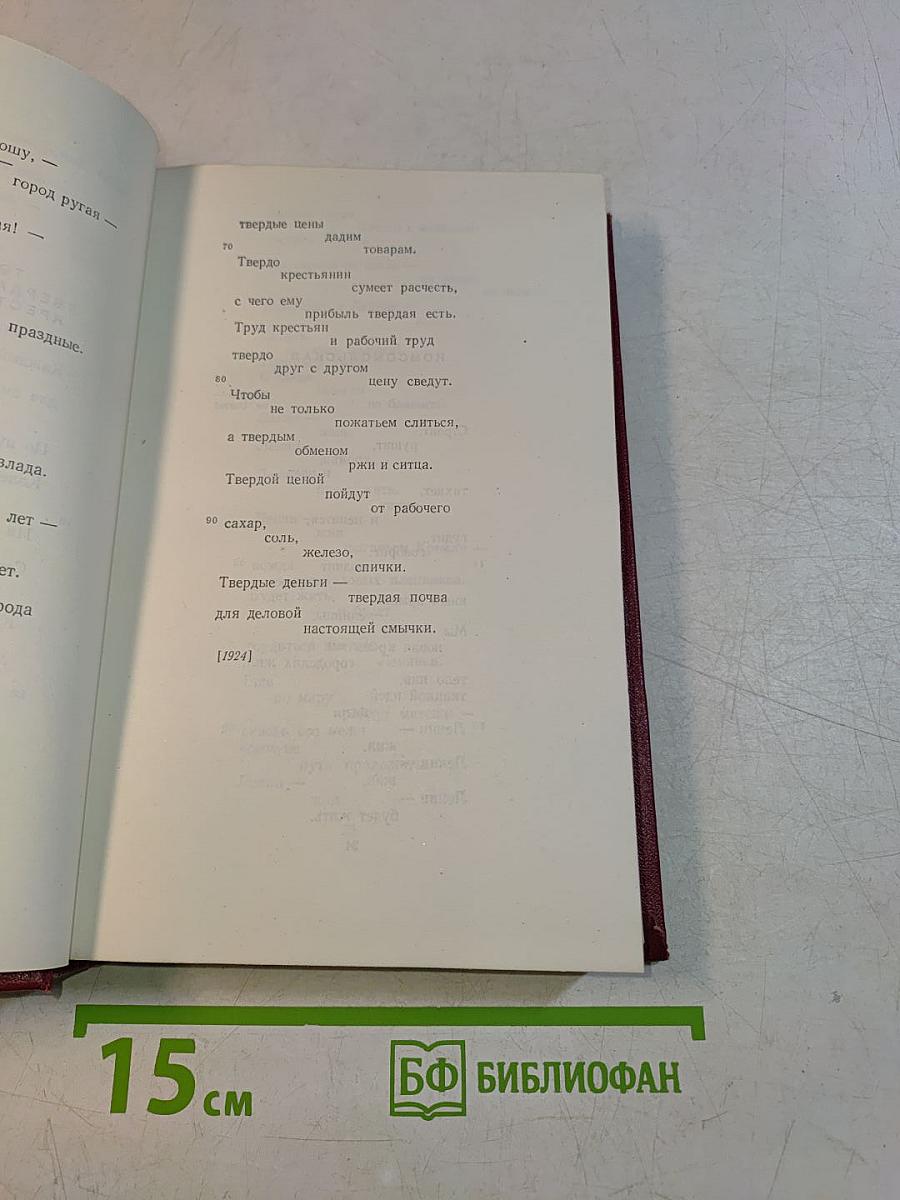 ошу, —
город ругая —
ая! —
праздные.
злада.
лет —
ет.
рода
твердые цены
дадим
70 товарам.
Твердо
крестьянин
сумеет расчесть,
с чего ему
прибыль твердая есть.
Труд крестьян
и рабочий труд
твердо
друг с другом
80 цену сведут.
Чтобы
не только
пожатьем слиться,
а твердым
обменом
ржи и ситца.
Твердой ценой
пойдут
от рабочего
90 сахар,
соль,
железо,
спички.
Твердые деньги —
твердая почва
для деловой
настоящей смычки.
[1924]
15 см
БФ БИБЛИОФАН